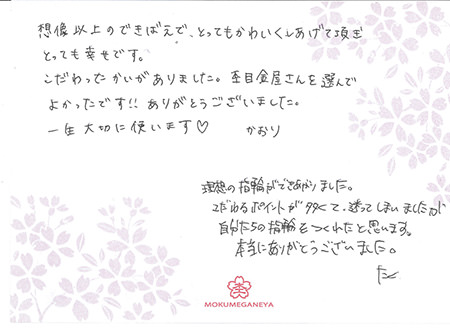 想像以上のできばえで、とってもかわいくしあげて頂き
とっても幸せです。
こだわったかいがありました。杢目金屋さんを選んで
よかったです!! ありがとうございました。
一生大切に使います♡ かおり
理想の指輪ができあがりました。
こだわるポイントが多くて、迷ってしまいましたが
自分たちの指輪をつくれたと思います。
本当にありがとうございました。
杢
MOKUMEGANEYA